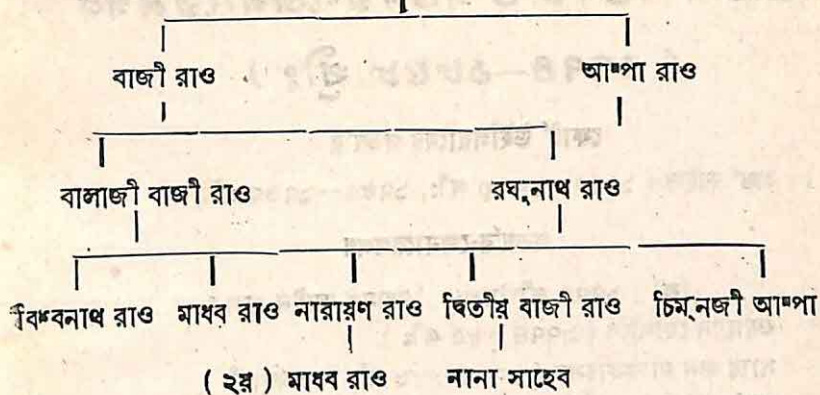 বাজী রাও আপ্পা রাও
বালাজী বাজী রাও রঘুনাথ রাও
বিশ্বনাথ রাও মাধব রাও নারায়ণ রাও দ্বিতীয় বাজী রাও চিমনজী আপ্পা
( ২য় ) মাধব রাও নানা সাহেব